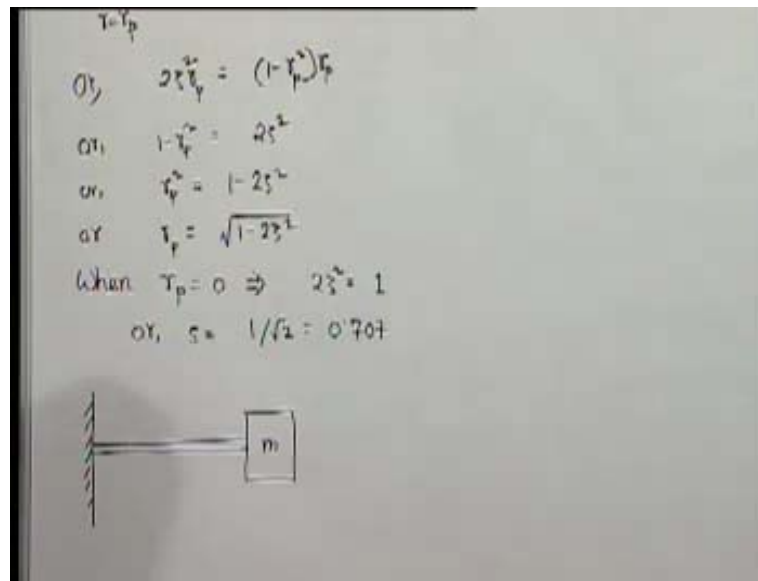 r=rₚ
Or, 2ξ²rₚ = (1-rₚ²)rₚ
or, 1-rₚ² = 2ξ²
or, rₚ² = 1-2ξ²
or rₚ = √(1-2ξ²)
When rₚ = 0 ⇒ 2ξ² = 1
or, ξ = 1/√2 = 0.707
m